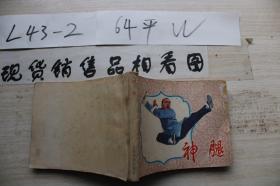 L43-2 64平W
现货销售品相看图
神腿